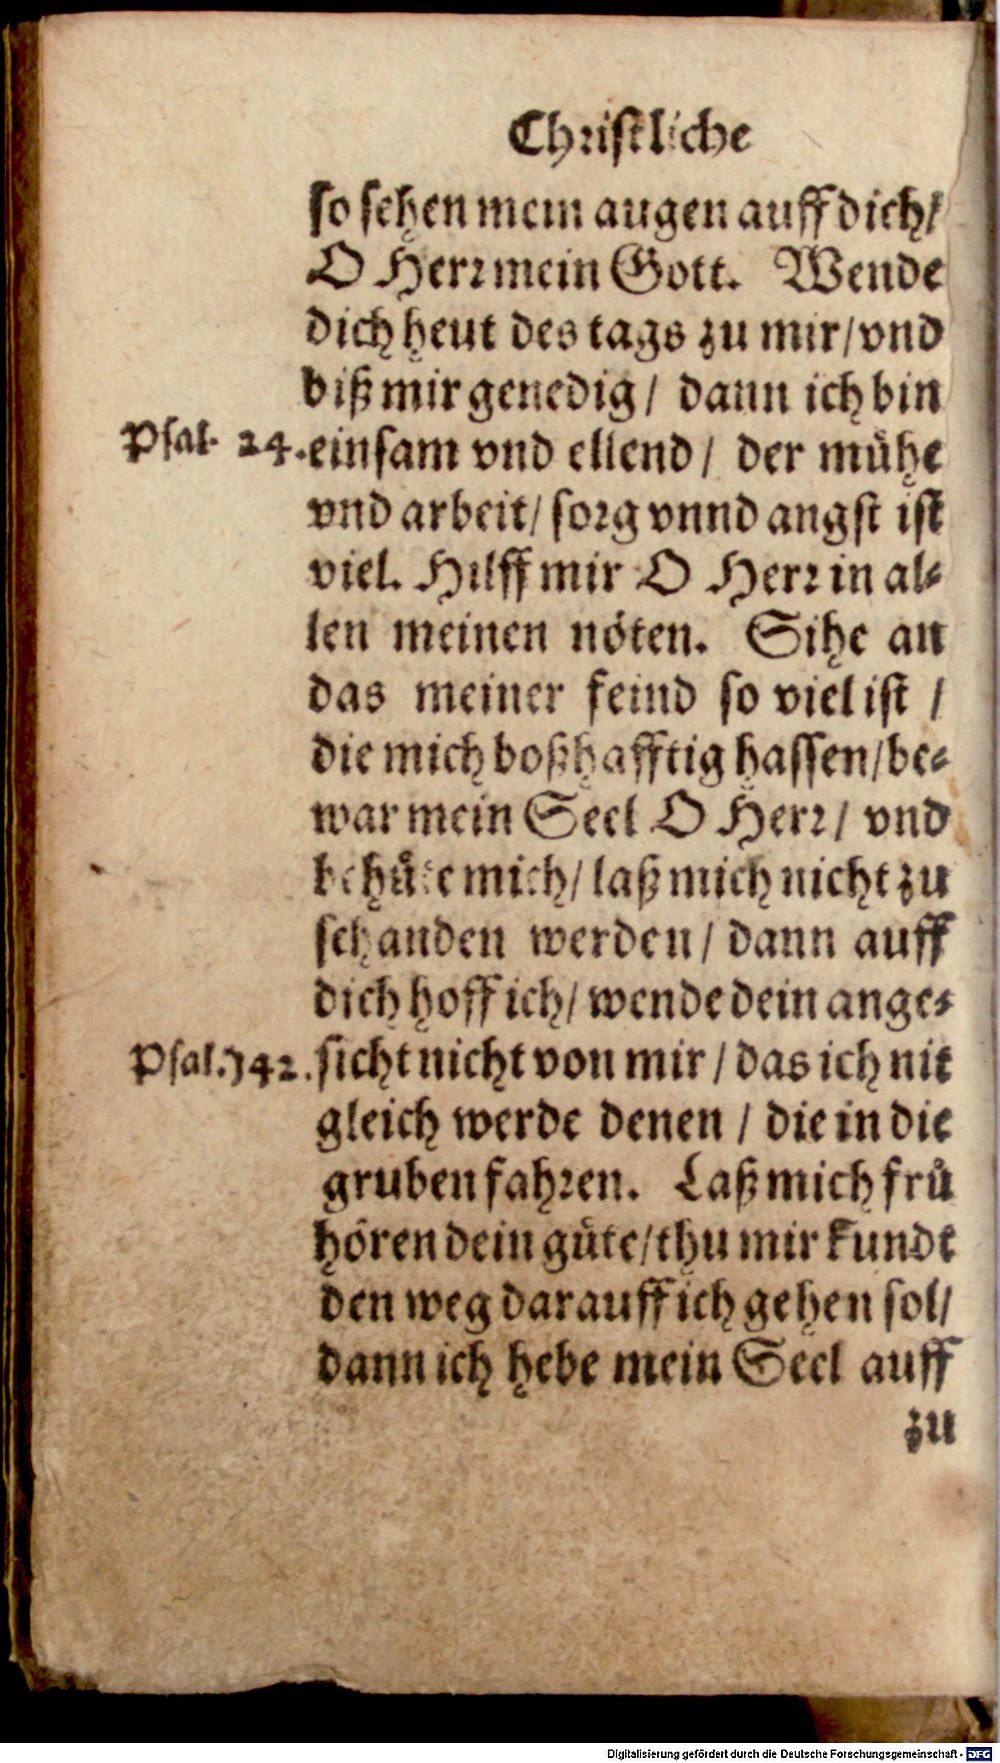 Christliche
so sehen mein augen auff dich/
O Herr mein Gott. Wende
dich heut des tags zu mir/vnd
biß mir genedig/ dann ich bin
Psal. 24. einsam vnd ellend/ der mühe
vnd arbeit/ sorg vnnd angst ist
viel. Hilff mir O Herr in al-
len meinen nöten. Sihe an
das meiner feind so viel ist /
die mich boßhafftig hassen/be-
war mein Seel O Herr/ vnd
behüte mich/ laß mich nicht zu
schanden werden/ dann auff
dich hoff ich/ wende dein ange-
Psal. 142. sicht nicht von mir/ das ich nit
gleich werde denen / die in die
gruben fahren. Laß mich frü
hören dein güte/thu mir kundt
den weg darauff ich gehen sol/
dann ich hebe mein Seel auff
zu
Digitalisierung gefördert durch die Deutsche Forschungsgemeinschaft - DFG